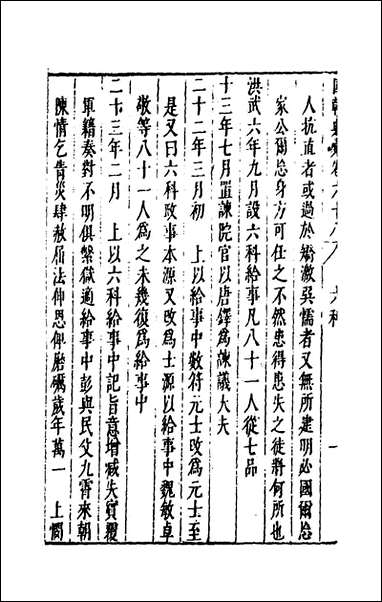 國朝典彙卷六十八 六科 一
人抗直者或過於矯激㢲懦者又無所建明必國爾忘
家公爾忘身方可任之不然患得患失之徒將何所也
洪武六年九月設六科給事凡八十一人從七品
十三年七月置諫院官以唐鐸爲諫議大夫
二十二年三月初 上以給事中數符元士改爲元士至
是又曰六科政事本源又改爲士源以給事中魏敏卓
敬等八十一人爲之未幾復爲給事中
二十三年二月 上以六科給事中記旨意增减失實覆
軍籍奏對不明俱繫獄適給事中彭與民父九霄來朝
陳情乞眚災肆赦屈法伸恩俾磨礪歲年萬一 上憫